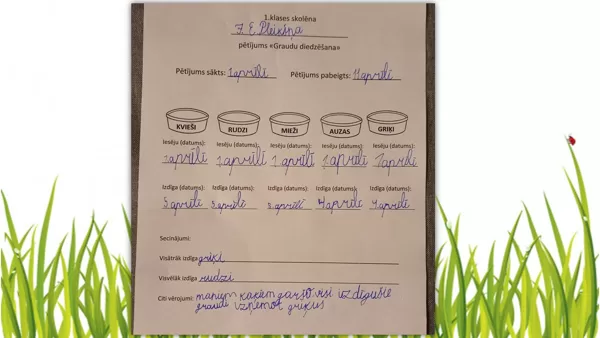 1.klases skolēna
E Pleikšņa
pētījums «Graudu diedzēšana»
Pētījums sākts: 1 aprīlī Pētījums pabeigts: 11 aprīlī
KVIEŠI RUDZI MIEŽI AUZAS GRIĶI
Iesēju (datums): Iesēju (datums): Iesēju (datums): Iesēju (datums): Iesēju (datums):
1 aprīlī 1 aprīlī 1 aprīlī 1 aprīlī 1 aprīlī
Izdīga (datums): Izdīga (datums): Izdīga (datums): Izdīga (datums): Izdīga (datums):
aprīlī aprīlī aprīlī 4 aprīlī 4 aprīlī
Secinājumi:
Visātrāk izdīga griķi
Visvēlāk izdīga rudzi
Citi vērojumi: manym kaķēm garšo visi izdīgušie
graudi izņemot griķus